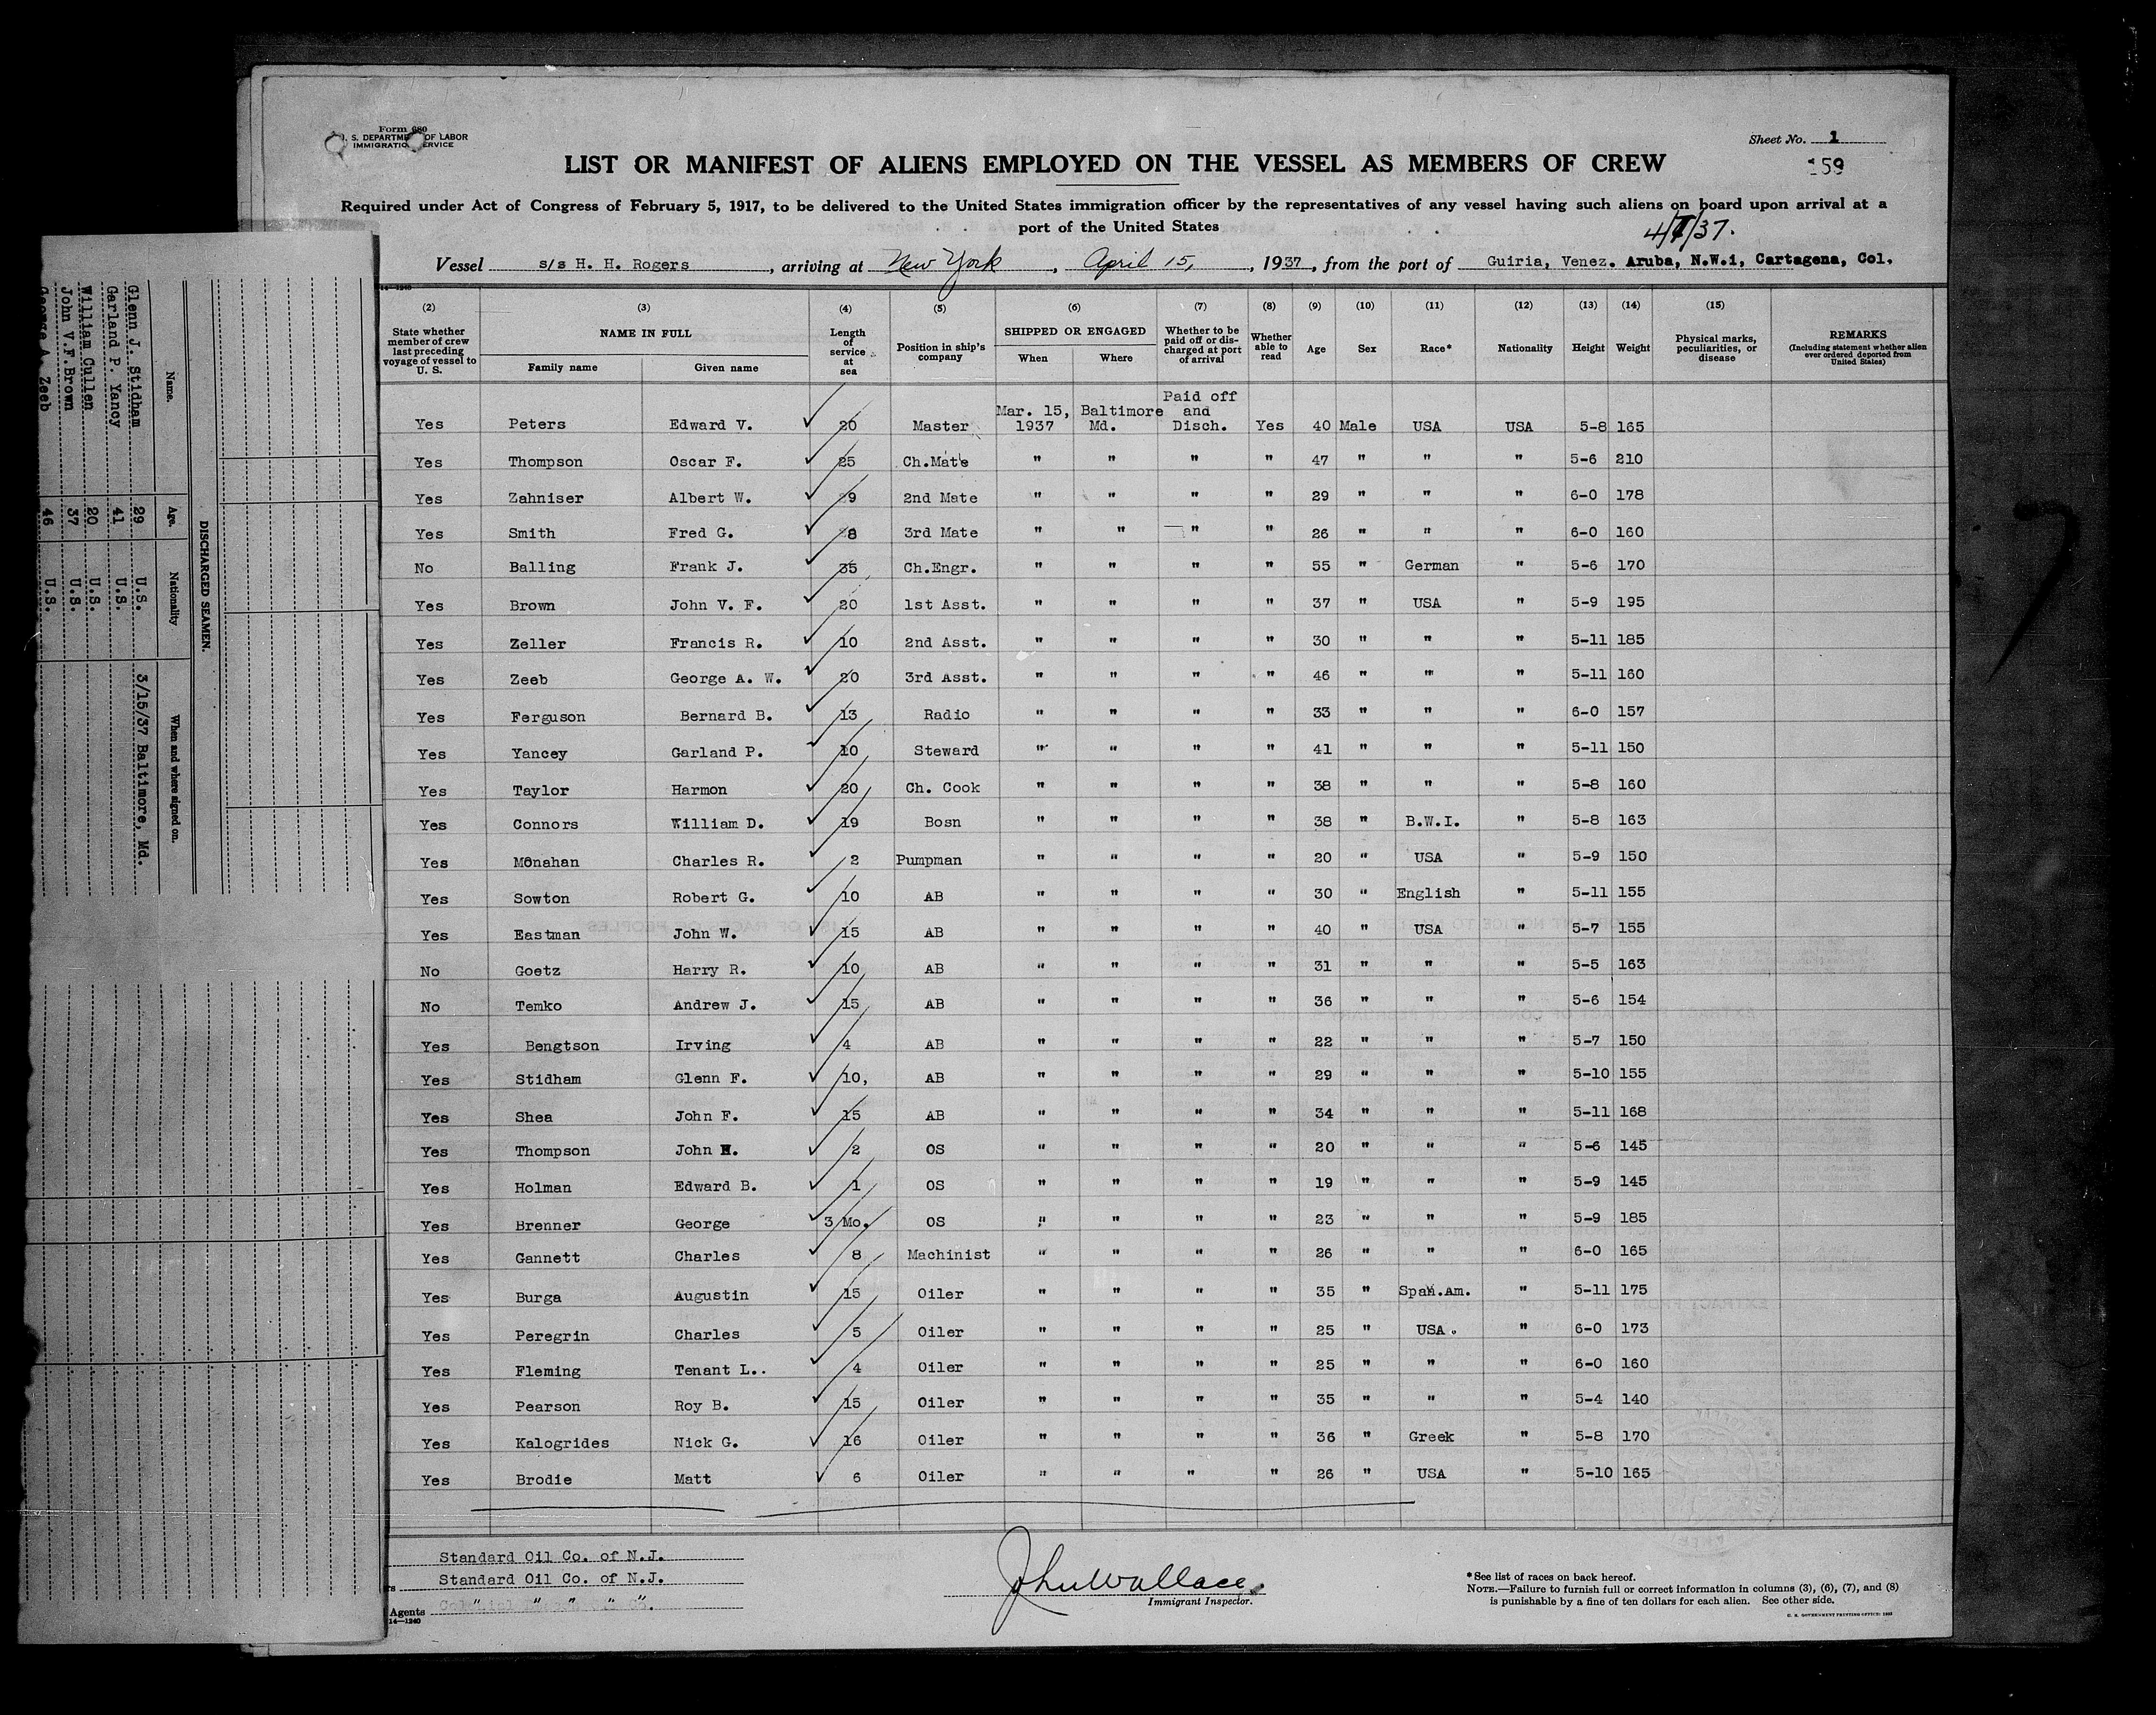 Form 680
U. S. DEPARTMENT OF LABOR
IMMIGRATION SERVICE
Sheet No. 1
159
LIST OR MANIFEST OF ALIENS EMPLOYED ON THE VESSEL AS MEMBERS OF CREW
Required under Act of Congress of February 5, 1917, to be delivered to the United States immigration officer by the representatives of any vessel having such aliens on board upon arrival at a
port of the United States
4/7/37.
Vessel s/s H. H. Rogers, arriving at New York, April 15, 1937, from the port of Guiria, Venez. Aruba, N.W.i, Cartagena, Col.
14—1240
(2) (3) (4) (5) (6) (7) (8) (9) (10) (11) (12) (13) (14) (15)
State whether member of crew last preceding voyage of vessel to U. S. NAME IN FULL Family name Given name Length of service at sea Position in ship's company SHIPPED OR ENGAGED When Where Whether to be paid off or discharged at port of arrival Whether able to read Age Sex Race* Nationality Height Weight Physical marks, peculiarities, or disease REMARKS (Including statement whether alien ever ordered deported from United States)
Yes Peters Edward V. 20 Master Mar. 15, 1937 Baltimore Md. Paid off and Disch. Yes 40 Male USA USA 5-8 165
Yes Thompson Oscar F. 25 Ch.Mate " " " " 47 " " " 5-6 210
Yes Zahniser Albert W. 9 2nd Mate " " " " 29 " " " 6-0 178
Yes Smith Fred G. 8 3rd Mate " " " " 26 " " " 6-0 160
No Balling Frank J. 35 Ch.Engr. " " " " 55 " German " 5-6 170
Yes Brown John V. F. 20 1st Asst. " " " " 37 " USA " 5-9 195
Yes Zeller Francis R. 10 2nd Asst. " " " " 30 " " " 5-11 185
Yes Zeeb George A. W. 20 3rd Asst. " " " " 46 " " " 5-11 160
Yes Ferguson Bernard B. 13 Radio " " " " 33 " " " 6-0 157
Yes Yancey Garland P. 10 Steward " " " " 41 " " " 5-11 150
Yes Taylor Harmon 20 Ch. Cook " " " " 38 " " " 5-8 160
Yes Connors William D. 19 Bosn " " " " 38 " B.W.I. " 5-8 163
Yes Monahan Charles R. 2 Pumpman " " " " 20 " USA " 5-9 150
Yes Sowton Robert G. 10 AB " " " " 30 " English " 5-11 155
Yes Eastman John W. 15 AB " " " " 40 " USA " 5-7 155
No Goetz Harry R. 10 AB " " " " 31 " " " 5-5 163
No Temko Andrew J. 15 AB " " " " 36 " " " 5-6 154
Yes Bengtson Irving 4 AB " " " " 22 " " " 5-7 150
Yes Stidham Glenn F. 10, AB " " " " 29 " " " 5-10 155
Yes Shea John F. 15 AB " " " " 34 " " " 5-11 168
Yes Thompson John H. 2 OS " " " " 20 " " " 5-6 145
Yes Holman Edward B. 1 OS " " " " 19 " " " 5-9 145
Yes Brenner George 3 Mo. OS " " " " 23 " " " 5-9 185
Yes Gannett Charles 8 Machinist " " " " 26 " " " 6-0 165
Yes Burga Augustin 15 Oiler " " " " 35 " Span.Am. " 5-11 175
Yes Peregrin Charles 5 Oiler " " " " 25 " USA. " 6-0 173
Yes Fleming Tenant L.. 4 Oiler " " " " 25 " " " 6-0 160
Yes Pearson Roy B. 15 Oiler " " " " 35 " " " 5-4 140
Yes Kalogrides Nick G. 16 Oiler " " " " 36 " Greek " 5-8 170
Yes Brodie Matt 6 Oiler " " " " 26 " USA " 5-10 165
Standard Oil Co. of N.J.
Standard Oil Co. of N.J.
Agents " " " "
14—1240
John Wallace.
Immigrant Inspector.
*See list of races on back hereof.
NOTE.—Failure to furnish full or correct information in columns (3), (6), (7), and (8)
is punishable by a fine of ten dollars for each alien. See other side.
U. S. GOVERNMENT PRINTING OFFICE
DISCHARGED SEAMEN.
Name. Age. Nationality When and where signed on.
Glenn J. Stidham 29 U.S. 3/15/37 Baltimore, Md.
Garland P. Yancy 41 U.S.
William Cullen 20 U.S.
John V.F.Brown 37 U.S.
George A. Zeeb 46 U.S.